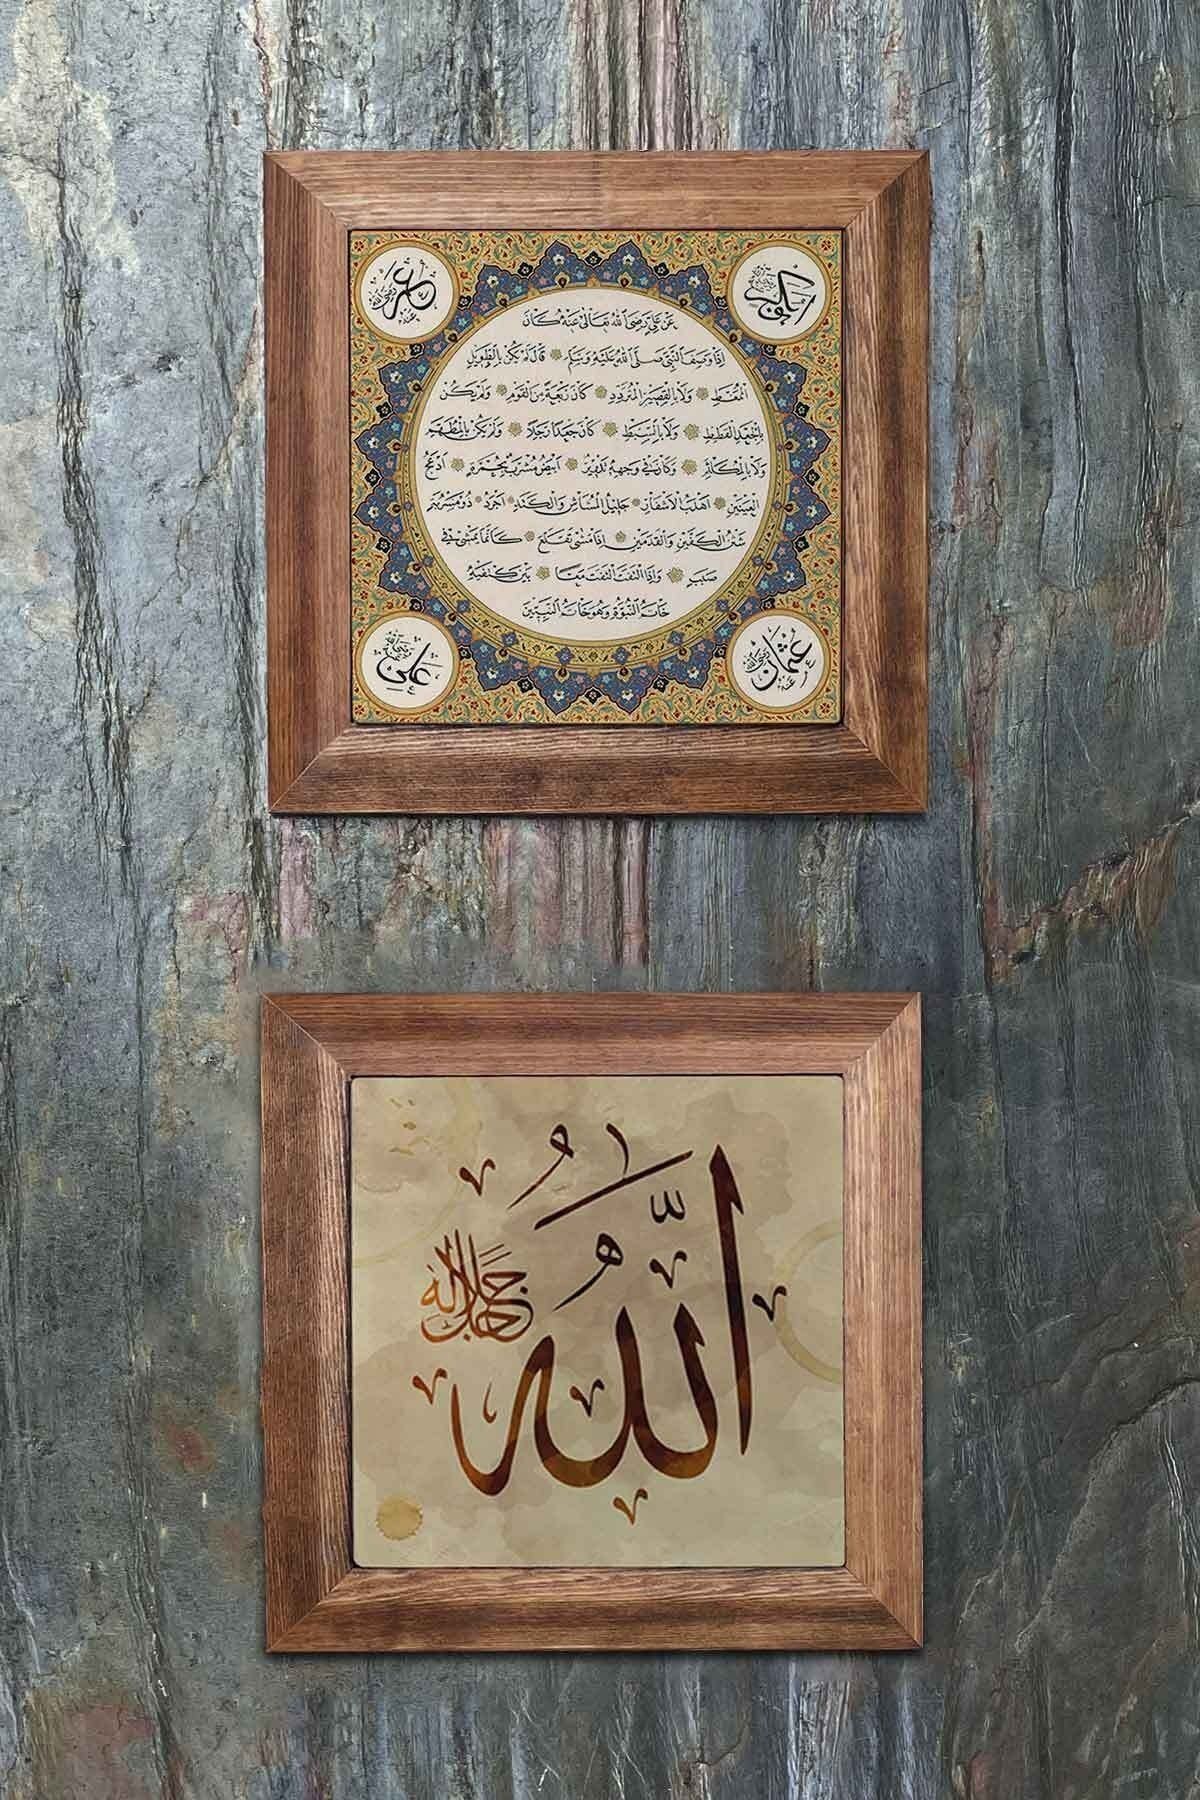 ابو بكر رضي الله عنه
عمر رضي الله عنه
عَنْ عَلِيٍّ رَضِيَ اللهُ تَعَالَى عَنْهُ كَانَ
إِذَا وَصَفَ النَّبِيَّ صَلَّى اللهُ عَلَيْهِ وَسَلَّمَ قَالَ لَمْ يَكُنْ بِالطَّوِيلِ
الْمُمَغَّطِ وَلَا بِالْقَصِيرِ الْمُتَرَدِّدِ كَانَ رَبْعَةً مِنَ الْقَوْمِ وَلَمْ يَكُنْ
بِالْجَعْدِ الْقَطِطِ وَلَا بِالسَّبِطِ كَانَ جَعْدًا رَجِلًا وَلَمْ يَكُنْ بِالْمُطَهَّمِ
وَلَا بِالْمُكَلْثَمِ وَكَانَ فِي وَجْهِهِ تَدْوِيرٌ أَبْيَضُ مُشْرَبٌ بِحُمْرَةٍ أَدْعَجُ
الْعَيْنَيْنِ أَهْدَبُ الْأَشْفَارِ جَلِيلُ الْمُشَاشِ وَالْكَتَدِ أَجْرَدُ ذُو مَسْرُبَةٍ
شَثْنُ الْكَفَّيْنِ وَالْقَدَمَيْنِ إِذَا مَشَى تَقَلَّعَ كَأَنَّمَا يَمْشِي فِي
صَبَبٍ وَإِذَا الْتَفَتَ الْتَفَتَ مَعًا بَيْنَ كَتِفَيْهِ
خَاتَمُ النُّبُوَّةِ وَهُوَ خَاتَمُ النَّبِيِّينَ
عثمان رضي الله عنه
علي رضي الله عنه
اللّٰهُ
جل جلاله